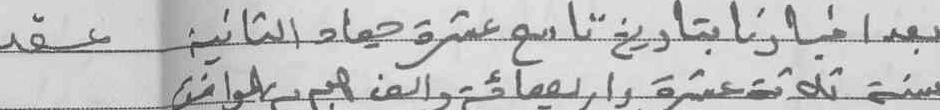 بعد اخبارنا بتاريخ تاسع عشرة جماد الثانية عقد
سنة ثلاثة عشرة واربعمائة والف هجرية الموافق